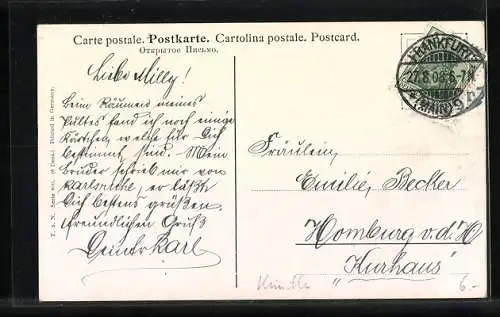 Carte postale. Postkarte. Cartolina postale. Postcard.
Открытое Письмо.
FRANKFURT
27.8.08.6-7N
(MAIN) 9
Liebe Milly!
Beim Räumen meines
Pultes fand ich noch einige
Kärtchen, welche für Dich
bestimmt sind. – Mein
Bruder schrieb mir von
Karlsruhe, er läßt
Dich bestens grüßen.
Freundlichen Gruß
Dein Karl
Fräulein,
Emilie Becker
Homburg v.d.H
„Kurhaus"
6.-
T. S. N. Serie
Printed in Germany.